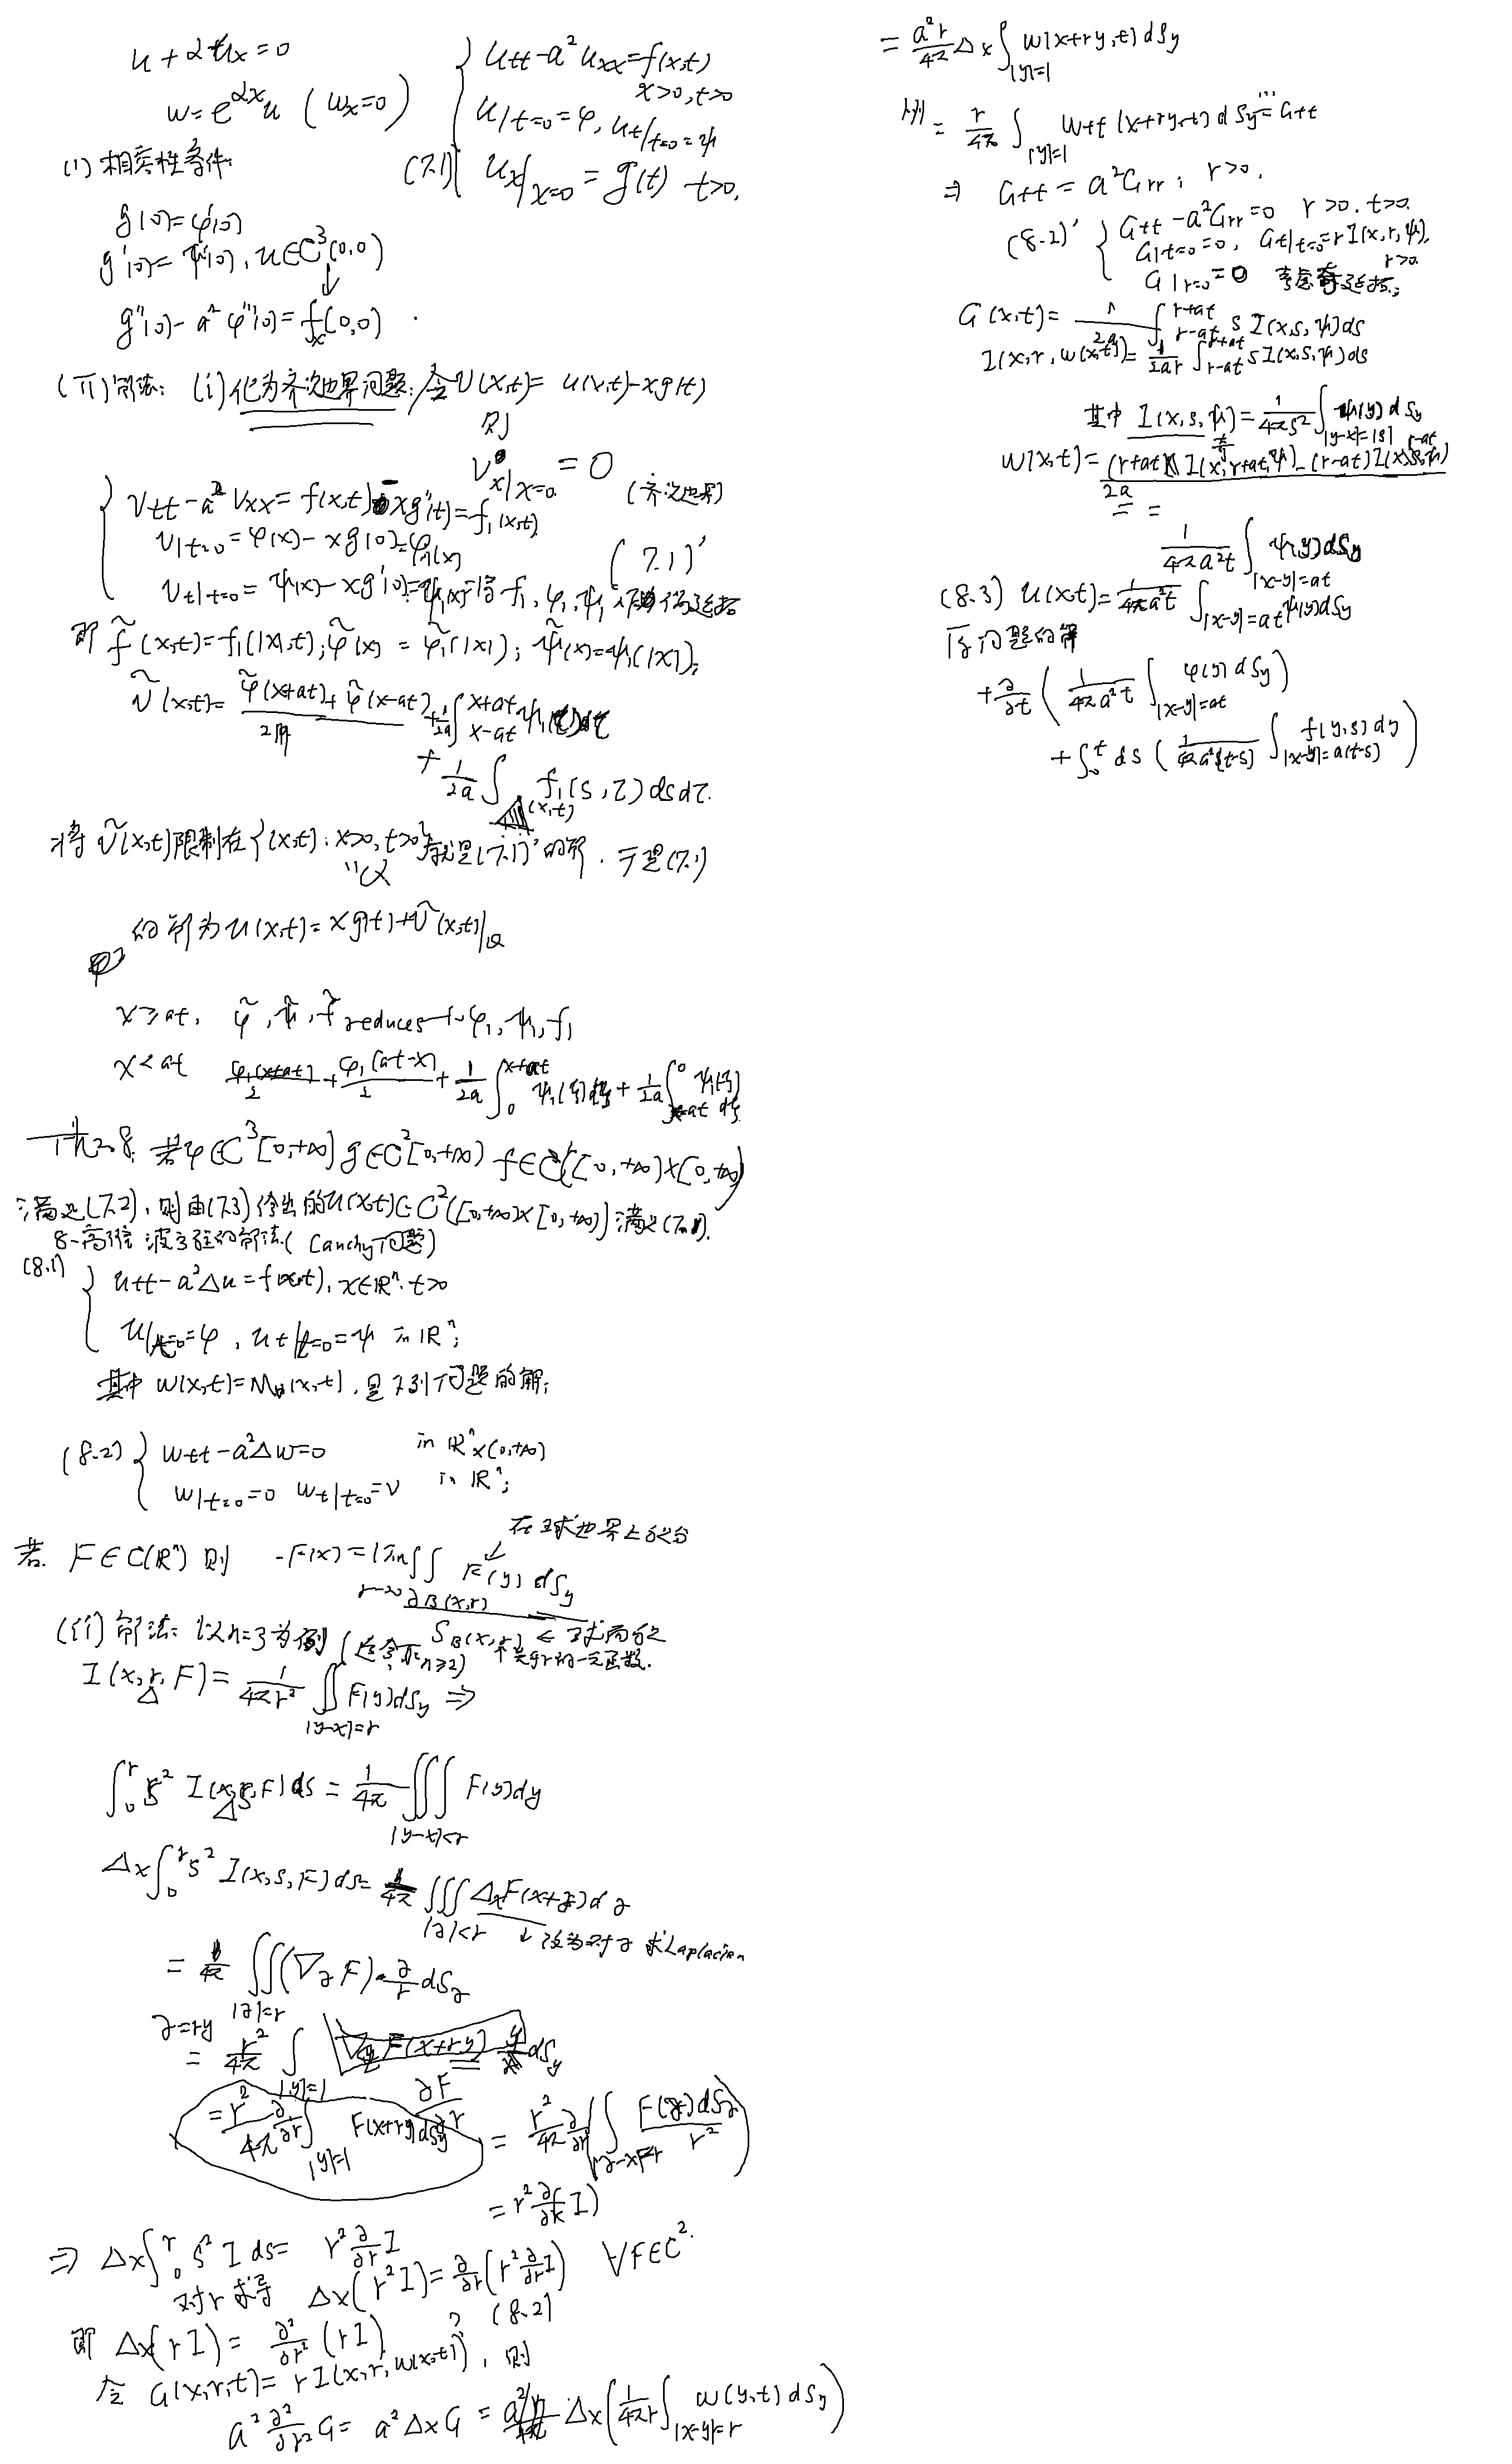 u + α u_x = 0
w = e^{αx} u ( w_x = 0 )
{ u_tt - a² u_xx = f(x,t) x>0, t>0
u|_{t=0} = φ, u_t|_{t=0} = ψ
(7.1) u_x|_{x=0} = g(t) t>0.
(I) 相容性条件:
g(0) = φ'(0)
g'(0) = ψ'(0), u∈C³(0,0)
↓
g''(0) - a² φ'''(0) = f_x(0,0) .
(II) 解法: (i) 化为齐次边界问题: 令 v(x,t) = u(x,t) - x g(t)
则
v_x|_{x=0} = 0 (齐次边界)
{ v_tt - a² v_xx = f(x,t) - x g''(t) = f₁(x,t)
v|_{t=0} = φ(x) - x g(0) = φ₁(x) (7.1)'
v_t|_{t=0} = ψ(x) - x g'(0) = ψ₁(x) 将 f₁, φ₁, ψ₁ 偶延拓
即 f̃(x,t) = f₁(|x|,t); φ̃(x) = φ̃₁(|x|); ψ̃(x) = ψ₁(|x|);
ṽ(x,t) = (φ̃(x+at) + φ̃(x-at))/2 + 1/2a ∫_{x-at}^{x+at} ψ₁(τ)dτ
+ 1/2a ∫_{△(x,t)} f₁(s,τ) ds dτ.
将 ṽ(x,t) 限制在 {(x,t): x>0, t>0} 就是 (7.1)' 的解. 于是 (7.1)
" Q
的解为 u(x,t) = x g(t) + ṽ(x,t)|_Q
x ≥ at, φ̃, ψ̃, f̃ reduces to φ₁, ψ₁, f₁
x < at φ₁(x+at)/2 + φ₁(at-x)/2 + 1/2a ∫_0^{x+at} ψ₁(ξ)dξ + 1/2a ∫_{x-at}^0 ψ₁(ξ) dξ
Th 2.8. 若 φ∈C³[0,+∞) g∈C²[0,+∞) f∈C¹([0,+∞)×[0,+∞)
满足 (7.2), 则由 (7.3) 给出的 u(x,t)∈C²([0,+∞)×[0,+∞)) 满足 (7.1).
8-高维波方程的解法 ( Cauchy 问题)
(8.1) { u_tt - a²Δu = f(x,t), x∈ℝⁿ, t>0
u|_{t=0} = φ, u_t|_{t=0} = ψ in ℝⁿ;
其中 w(x,t) = M(x,t), 是下列问题的解;
(8.2) { w_tt - a²Δw = 0 in ℝⁿ×(0,+∞)
w|_{t=0} = 0 w_t|_{t=0} = v in ℝⁿ;
在球边界上积分
若 F∈C(ℝⁿ) 则 F(x) = lim_{r→0} ∬_{∂B(x,r)} F(y) dS_y
S_B(x,r) ← 球面积
(ii) 解法: 以 n=3 为例 ( n≥2) 关于r的一元函数.
I(x,r,F) = 1/4πr² ∬_{|y-x|=r} F(y)dS_y ⇒
∫_0^r s² I(x,s,F) ds = 1/4π ∭_{|y-x|<r} F(y)dy
Δ_x ∫_0^r s² I(x,s,F) ds = 1/4π ∭_{|z|<r} Δ_x F(x+z) dz
↓ 改为对 z 求 Laplacian
= 1/4π ∬_{|z|=r} (∇_z F)·z/r dS_z
z=ry
= r²/4π ∫_{|y|=1} ∇F(x+ry) y dS_y
∂F/∂r
= r²/4π ∂/∂r ∫_{|y|=1} F(x+ry)dS_y = r²/4π ∂/∂r (∫_{|z-x|=r} F(z)dS_z / r²)
= r² ∂/∂r (I)
⇒ Δ_x ∫_0^r s² I ds = r² ∂/∂r I
对 r 求导 Δ_x(r² I) = ∂/∂r (r² ∂/∂r I) ∀F∈C².
即 Δ_x(r I) = ∂²/∂r² (r I) ? (8.2)
令 G(x,r,t) = r I(x,r,w(x,t)), 则
a² ∂²/∂r² G = a² Δ_x G = a² Δ_x (1/4πr ∫_{|x-y|=r} w(y,t) dS_y)
= a²r/4π Δ_x ∫_{|y|=1} w(x+ry,t) dS_y
= r/4π ∫_{|y|=1} w_tt (x+ry,t) dS_y = G_tt
⇒ G_tt = a² G_rr; r>0.
(8.2)' { G_tt - a² G_rr = 0 r>0. t>0.
G|_{t=0} = 0, G_t|_{t=0} = r I(x,r,ψ), r>0
G|_{r=0} = 0 考虑奇延拓;
G(x,t) = 1/2a ∫_{r-at}^{r+at} s I(x,s,ψ)ds
I(x,r,w(x,t)) = 1/2ar ∫_{r-at}^{r+at} s I(x,s,ψ)ds
其中 I(x,s,ψ) = 1/4πs² ∫_{|y-x|=|s|} ψ(y) dS_y
w(x,t) = ((r+at) I(x,r+at,ψ) - (r-at) I(x,r-at,ψ))/2a
=
1/4πa²t ∫_{|x-y|=at} ψ(y)dS_y
(8.3) u(x,t) = 1/4πa²t ∫_{|x-y|=at} ψ(y)dS_y
原问题的解
+ ∂/∂t ( 1/4πa²t ∫_{|x-y|=at} φ(y) dS_y )
+ ∫_0^t ds ( 1/4πa²(t-s) ∫_{|x-y|=a(t-s)} f(y,s) dy )